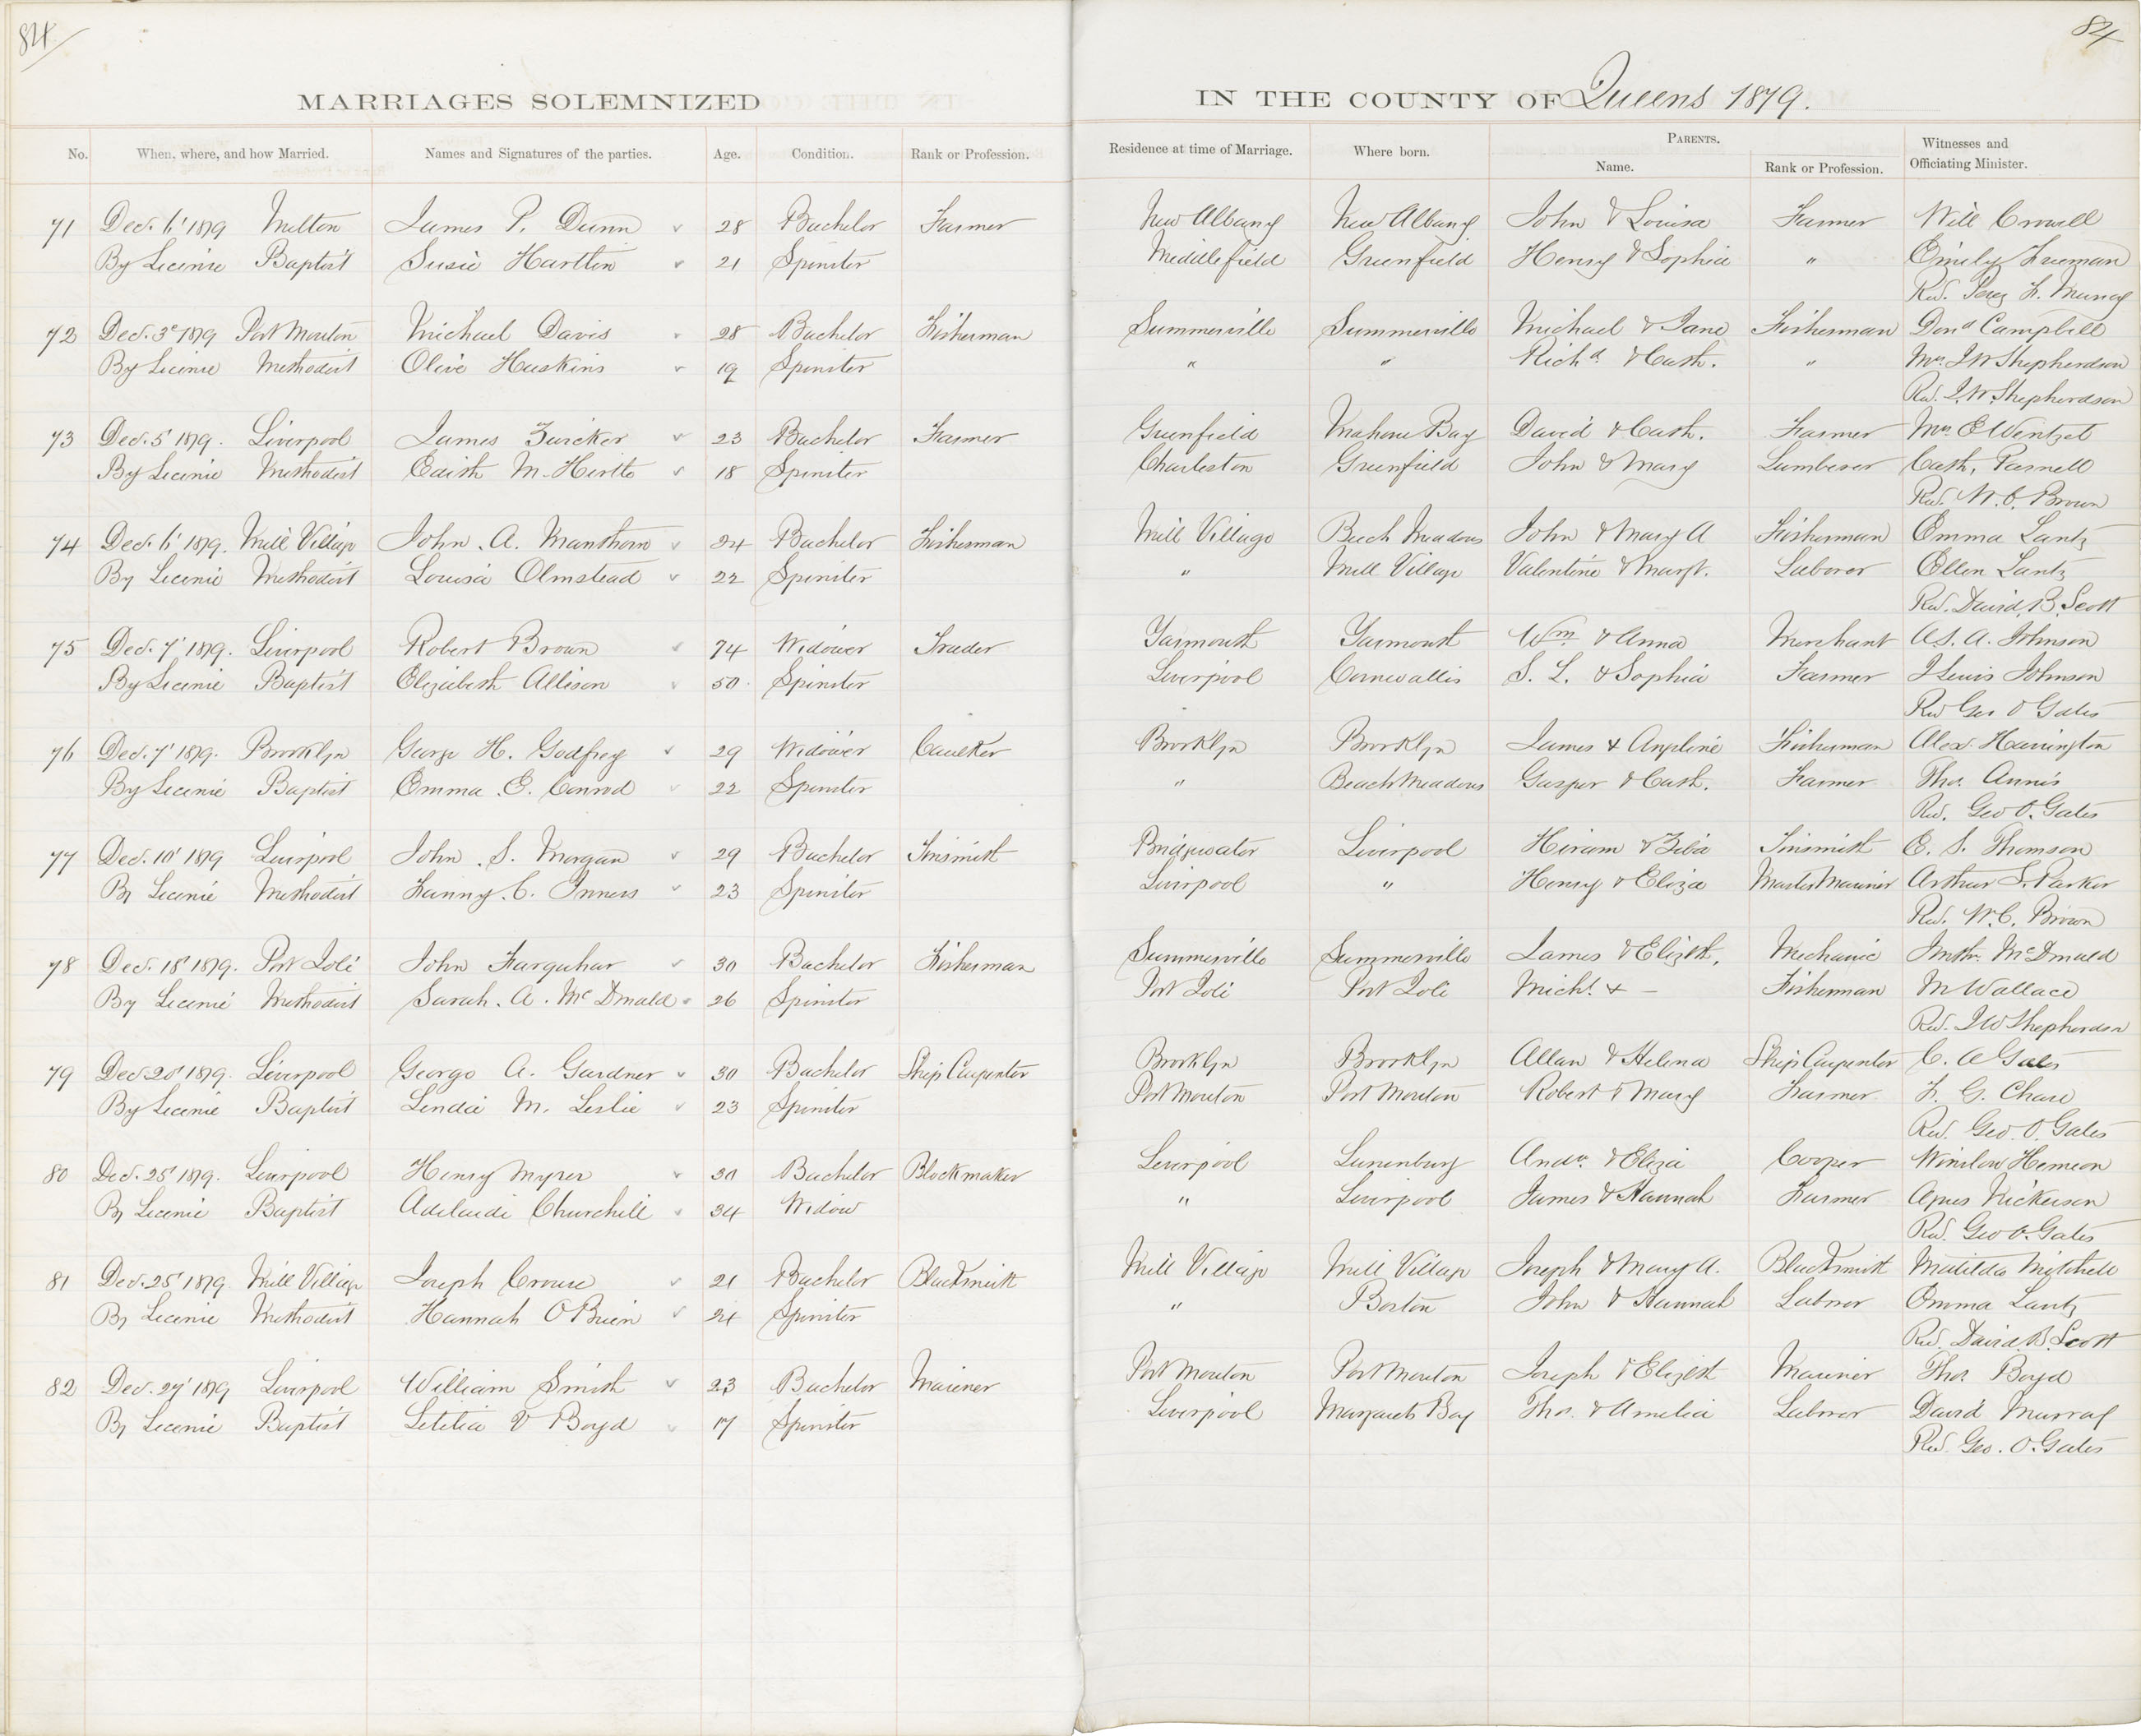 84
84
MARRIAGES SOLEMNIZED IN THE COUNTY OF Queens 1879.
No. When, where, and how Married. Names and Signatures of the parties. Age. Condition. Rank or Profession. Residence at time of Marriage. Where born. PARENTS. Name. Rank or Profession. Witnesses and Officiating Minister.
71 Dec. 6' 1879 Milton James P. Dunn 28 Bachelor Farmer New Albany New Albany John & Louisa Farmer Will Crowell
By Licence Baptist Susie Hartlin 21 Spinster Middlefield Greenfield Henry & Sophia " Emily Freeman
Rev. Perez F. Murray
72 Dec. 3d 1879 Port Mouton Michael Davis 28 Bachelor Fisherman Summerville Summerville Michael & Jane Fisherman Dond Campbell
By Licence Methodist Olive Huskins 19 Spinster " " Richd & Cath. " Mrs J W Shepherdson
Rev. J. W. Shepherdson
73 Dec. 5' 1879. Liverpool James Zwicker 23 Bachelor Farmer Greenfield Mahone Bay David & Cath. Farmer Mrs E Wentzel
By Licence Methodist Edith M. Hirtle 18 Spinster Charleston Greenfield John & Mary Lumberer Cath, Parnell
Rev. W. C. Brown
74 Dec. 6' 1879. Mill Village John. A. Manthorn 24 Bachelor Fisherman Mill Village Beech Meadows John & Mary A Fisherman Emma Lantz
By Licence Methodist Louisa Olmstead 22 Spinster " Mill Village Valentine & Margt. Laborer Ellen Lantz
Rev. David B. Scott
75 Dec. 7' 1879. Liverpool Robert Brown 74 Widower Trader Yarmouth Yarmouth Wm & Anna Merchant A. S. A. Johnson
By Licence Baptist Elizabeth Allison 50 Spinster Liverpool Cornwallis S. L. & Sophia Farmer J Lewis Johnson
Rev Geo O Gates
76 Dec. 7' 1879. Brooklyn George H. Godfrey 29 Widower Caulker Brooklyn Brooklyn James & Angeline Fisherman Alex. Harrington
By Licence Baptist Emma E. Conrod 22 Spinster " Beach Meadows Gasper & Cath. Farmer Thos. Annis
Rev. Geo O. Gates
77 Dec. 10' 1879 Liverpool John. S. Morgan 29 Bachelor Tinsmith Bridgewater Liverpool Hiram & Ziba Tinsmith E. S. Thomson
By Licence Methodist Fanny. C. Inness 23 Spinster Liverpool " Henry & Eliza Master Mariner Arthur S. Parker
Rev. W. C. Brown
78 Dec. 18' 1879. Port Joli John Farquhar 30 Bachelor Fisherman Summerville Summerville James & Elizth. Mechanic McDonald
By Licence Methodist Sarah. A. McDonald 26 Spinster Port Joli Port Joli Michl. & — Fisherman M Wallace
Rev. J W Shepherdson
79 Dec 20' 1879. Liverpool George A. Gardner 30 Bachelor Ship Carpenter Brooklyn Brooklyn Allan & Helena Ship Carpenter C. A Gates
By Licence Baptist Linda M. Leslie 23 Spinster Port Mouton Port Mouton Robert & Mary Farmer F. G. Chase
Rev. Geo. O. Gates
80 Dec. 25' 1879. Liverpool Henry Myrer 30 Bachelor Blockmaker Liverpool Lunenburg Andw. & Eliza Cooper Winslow Hemeon
By Licence Baptist Adelaide Churchill 34 Widow " Liverpool James & Hannah Farmer Agnes Nickerson
Rev. Geo O. Gates
81 Dec. 25' 1879 Mill Village Joseph Crouse 21 Bachelor Blacksmith Mill Village Mill Village Joseph & Mary A. Blacksmith Matilda Mitchell
By Licence Methodist Hannah O'Brien 24 Spinster " Boston John & Hannah Laborer Emma Lantz
Rev. David B. Scott
82 Dec. 27' 1879 Liverpool William Smith 23 Bachelor Mariner Port Mouton Port Mouton Joseph & Elizbth Mariner Thos. Boyd
By Licence Baptist Letitia V Boyd 17 Spinster Liverpool Margarets Bay Thos. & Amelia Laborer David Murray
Rev. Geo. O. Gates